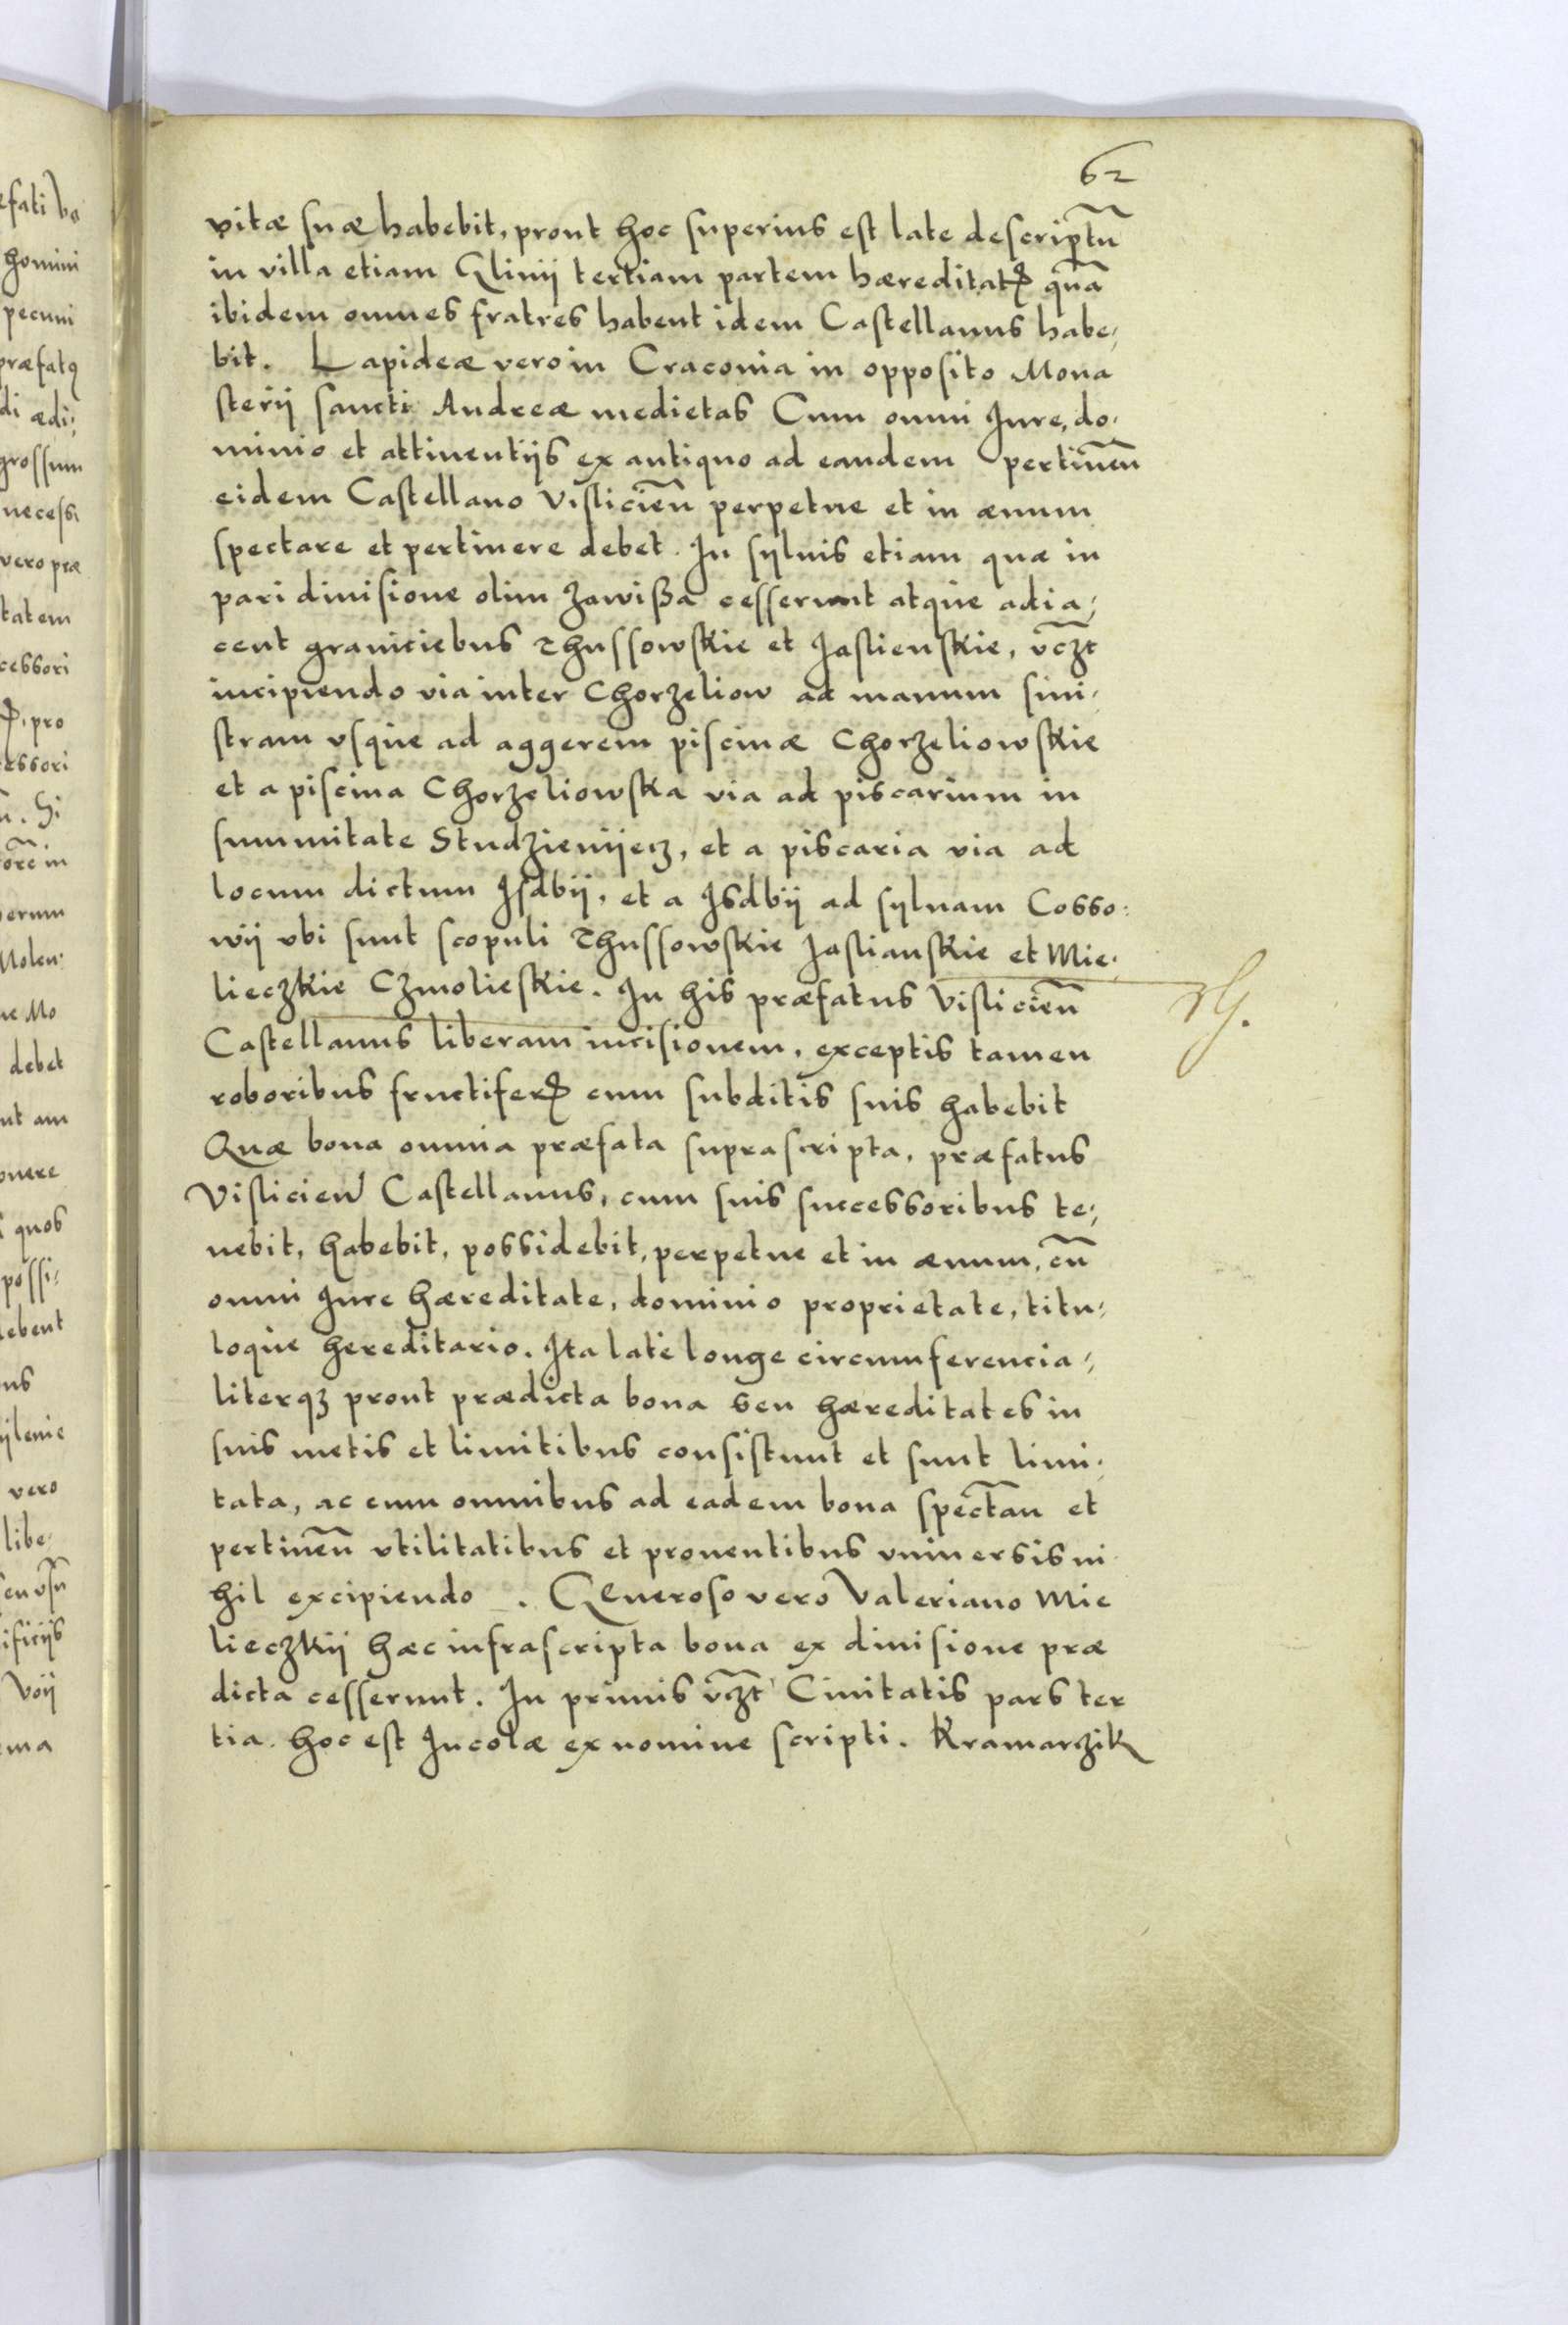 62
vitæ suæ habebit, prout hoc superius est late descriptū
in villa etiam Glinÿ tertiam partem hæreditatꝭ quā
ibidem omnes fratres habent idem Castellanus habe,
bit. Lapideæ vero in Cracouia in opposito Mona
sterÿ sancti Andreæ medietas Cum omni Iure, do,
minio et attinentÿs ex antiquo ad eandem pertineñ
eidem Castellano Visliceñ perpetue et in æuum
spectare et pertinere debet. In syluis etiam quæ in
pari diuisione olim Zawißa cesserunt atque adia,
cent graniciebus Thussowskie et Jaslienskie, vcꝫt
incipiendo via inter Chorzeliow ad manum sini,
stram vsque ad aggerem piscinæ Chorzeliowskie
et a piscina Chorzeliowska via ad piscarium in
summitate Studzienÿecz, et a piscaria via ad
locum dictum Isdbÿ, et a Isdbÿ ad syluam Cosso,
wÿ vbi sunt scopuli Thussowskie Jaslianskie et Mie,
lieczkie Czmolieskie. In his præfatus Visliciēn
Castellanus liberam incisionem, exceptis tamen
roboribus fructiferꝭ cum subditis suis habebit
Quæ bona omnia præfata suprascripta, præfatus
Vislicien̄ Castellanus, cum suis successoribus te,
nebit, habebit, possidebit, perpetue et in æuum, cū
omni Iure hæreditate, dominio proprietate, titu,
loque hereditario. Ita late longe circumferencia,
literqꝫ prout prædicta bona seu hæreditates in
suis metis et limitibus consistunt et sunt limi,
tata, ac cum omnibus ad eadem bona spectan̄ et
pertineñ vtilitatibus et prouentibus vniuersis ni
hil excipiendo . Generoso vero Valeriano Mie
lieczkÿ hæc infrascripta bona ex diuisione præ
dicta cesserunt. In primis vcꝫt Ciuitatis pars ter
tia. hoc est Incolæ ex nomine scripti. Kramarzik